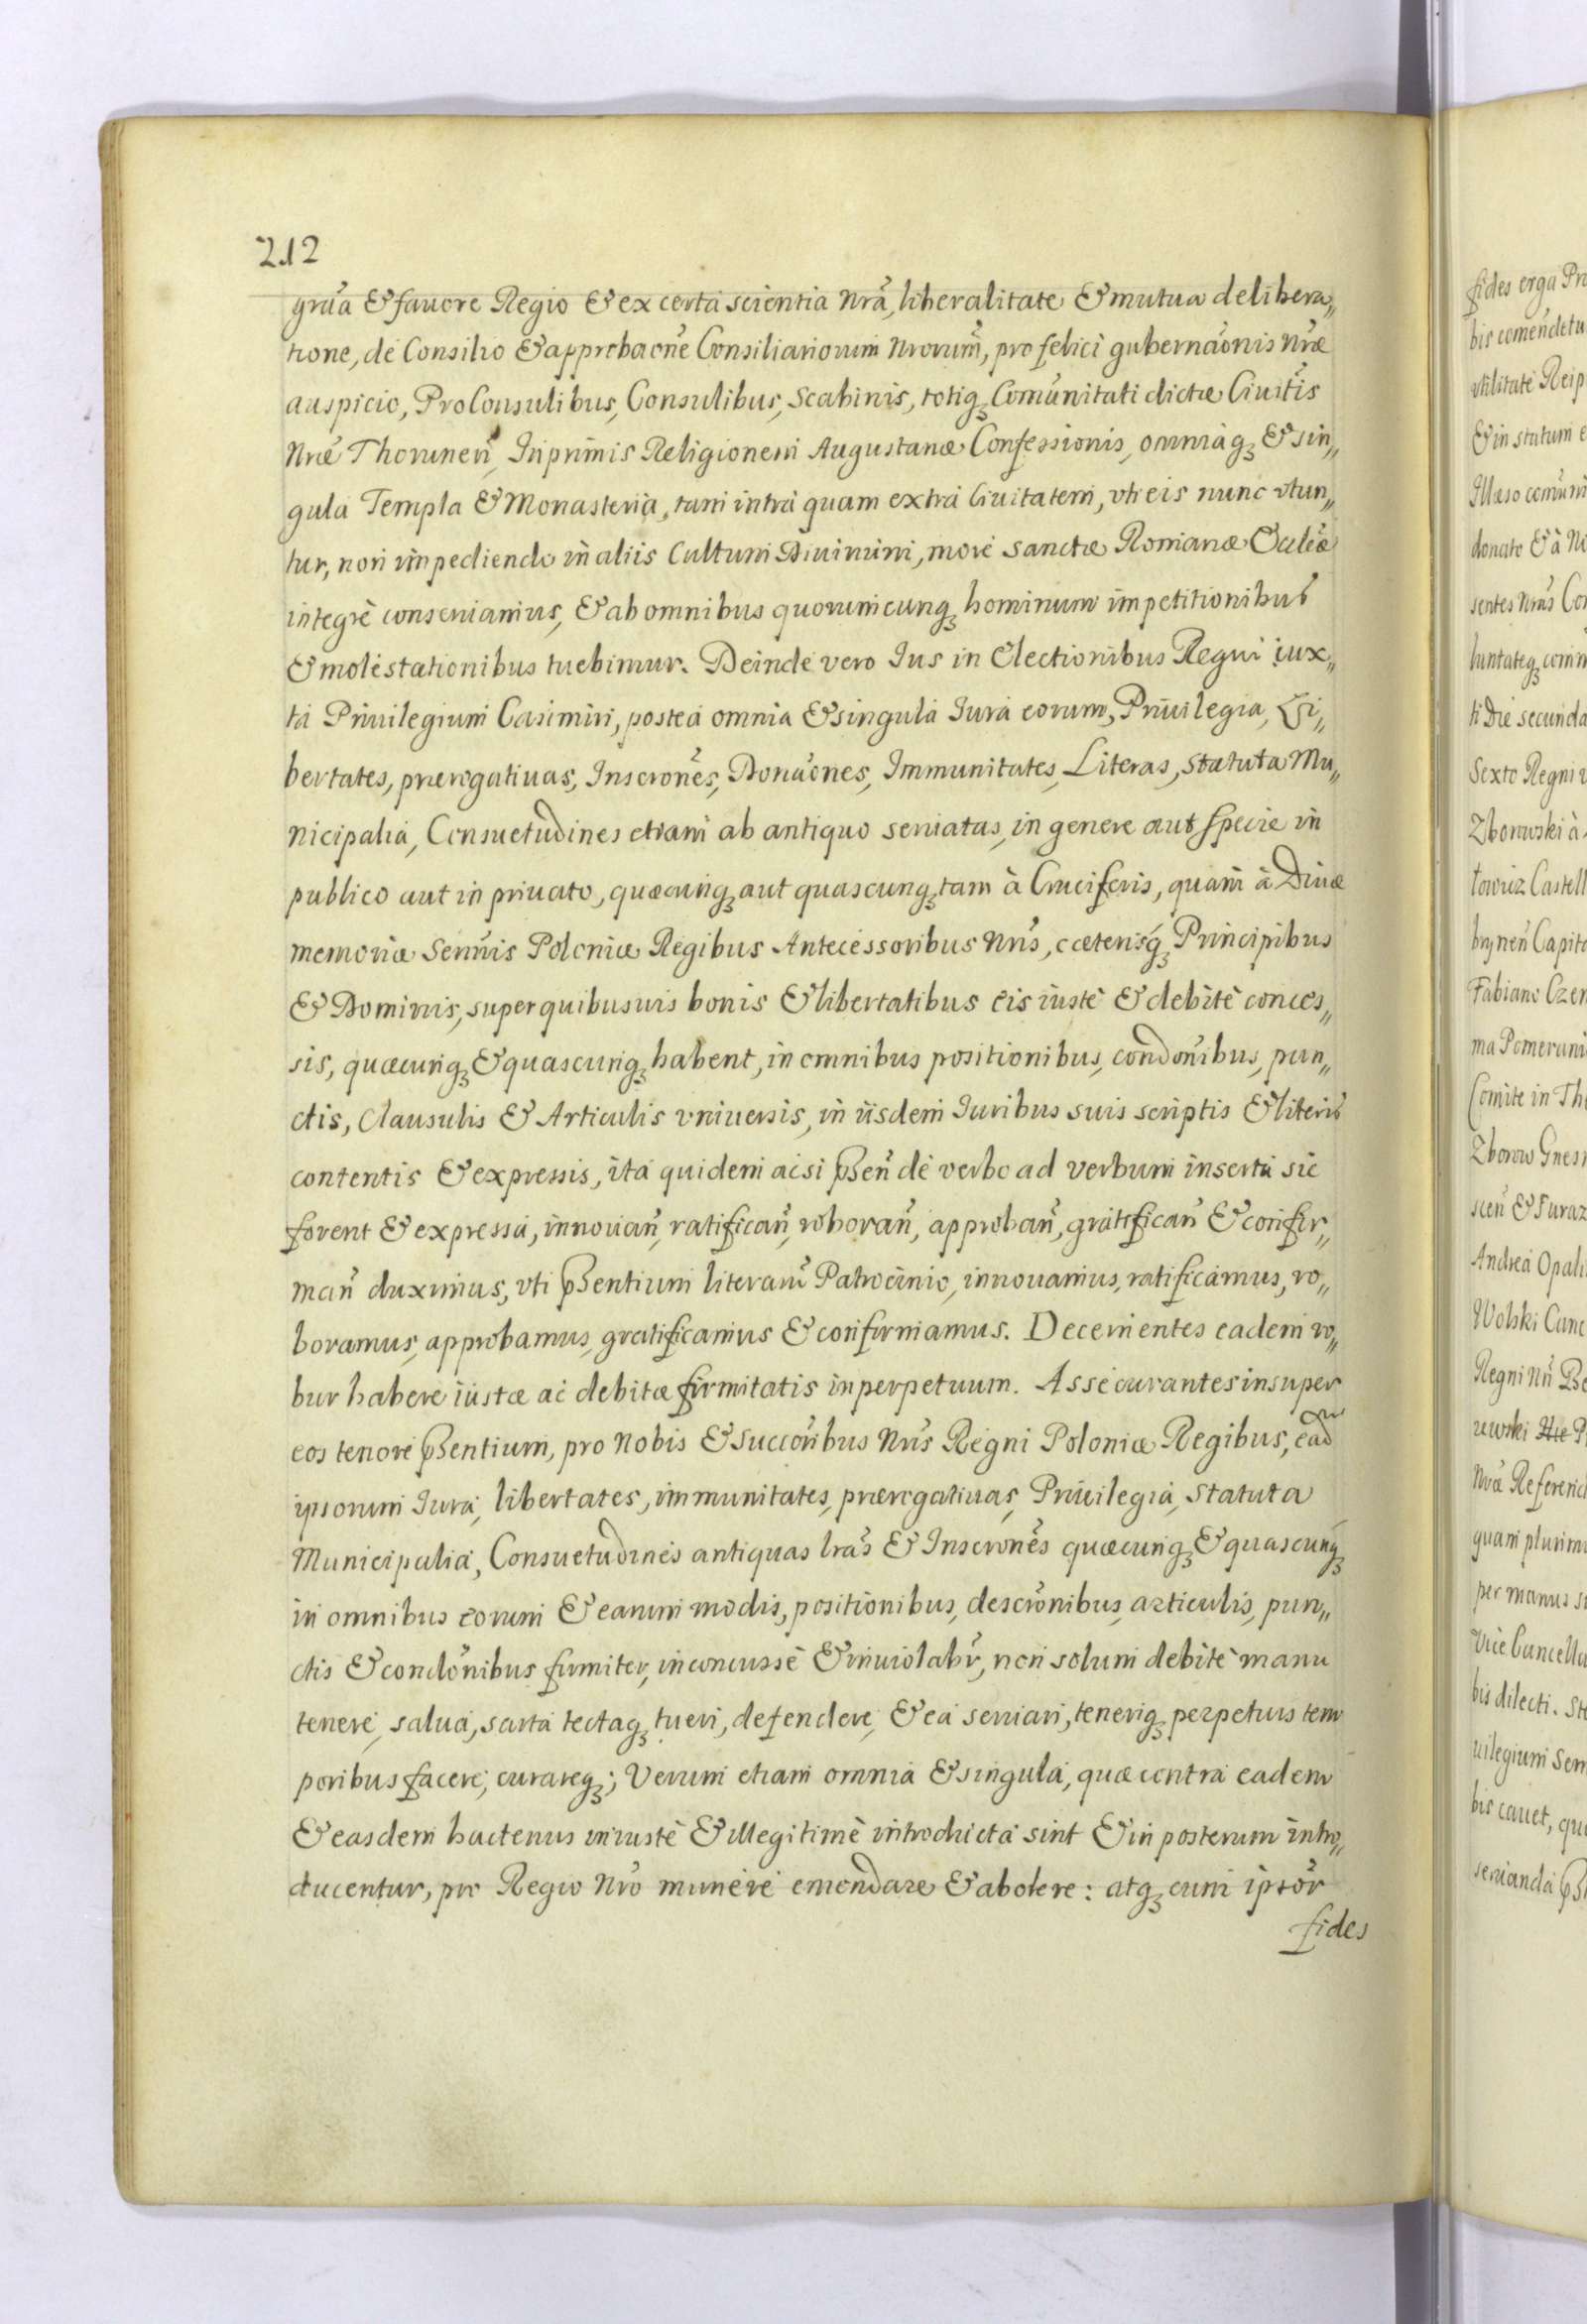 212
grãa & fauore Regio & ex certa scientia nrã, liberalitate & mutua delibera„
tione, de Consilio & approbaone Consiliariorum nrorum, pro felici gubernaonis nræ
auspicio, ProConsulibus, Consulibus, Scabinis, totiq3 Comunitati dictæ Ciuitis
nræ Thorunen, Inprimis Religionem Augustanæ Confessionis, omniaq3 & sin„
gula Templa & Monasteria, tam intra quam extra Ciuitatem, vti eis nunc vtun„
tur, non impediendo in aliis Cultum Diuinum, more sanctæ Romanæ Eccleæ
integrè conseruamus, & ab omnibus quorumcunq3 hominum impetitionibus
& molestationibus tuebimur. Deinde vero Ius in Electionibus Regni iux„
ta Priuilegium Casimiri, postea omnia & singula Iura eorum, Priuilegia, Li„
bertates, prærogatiuas, Inscrones, Donaones, Immunitates, Literas, statuta Mu„
nicipalia, Consuetudines etiam ab antiquo seruatas, in genere aut specie in
publico aut in priuato, quæcunq3 aut quascunq3 tam à Cruciferis, quam à Diuæ
memoriæ Seruis Poloniæ Regibus Antecessoribus nris, cæterisq3 Principibus
& Dominis, super quibusuis bonis & libertatibus eis iustè & debitè conces„
sis, quæcunq3 & quascunq3 habent, in omnibus positionibus, condonibus, pun„
ctis, Clausulis & Articulis vniuersis, in iisdem Iuribus suis scriptis & literis
contentis & expressis, ita quidem acsi pnsen de verbo ad verbum inserta sic
forent & expressa, innouan, ratifican, roboran, approban, gratifican & confir„
man duximus, vti pnsentium literarum Patrocinio, innouamus, ratificamus, ro„
boramus, approbamus, gratificamus & confirmamus. Decernentes eadem ro„
bur habere iustæ ac debitæ firmitatis in perpetuum. Assecurantes insuper
eos tenore pnsentium, pro nobis & Succoribus nris Regni Poloniæ Regibus, ead
ipsorum Iura, libertates, immunitates, prærogatiuas, Priuilegia, Statuta
Municipalia, Consuetudines antiquas lras & Inscrones quæcunq3 & quascunq3
in omnibus eorum & earum modis, positionibus, descronibus, articulis, pun„
ctis & condonibus firmiter, inconcussè & inuiolabr, non solum debitè manu
tenere, salua, sarta tectaq3 tueri, defendere, & ea seruari, teneriq3 perpetuis tem
poribus facere, curareq3; Verum etiam omnia & singula, quæ contra eadem
& easdem hactenus iniustè & illegitimè introducta sint & in posterum intro„
ducentur, pro Regio nro munere emendare & abolere: atq3 cum ipsor
fides